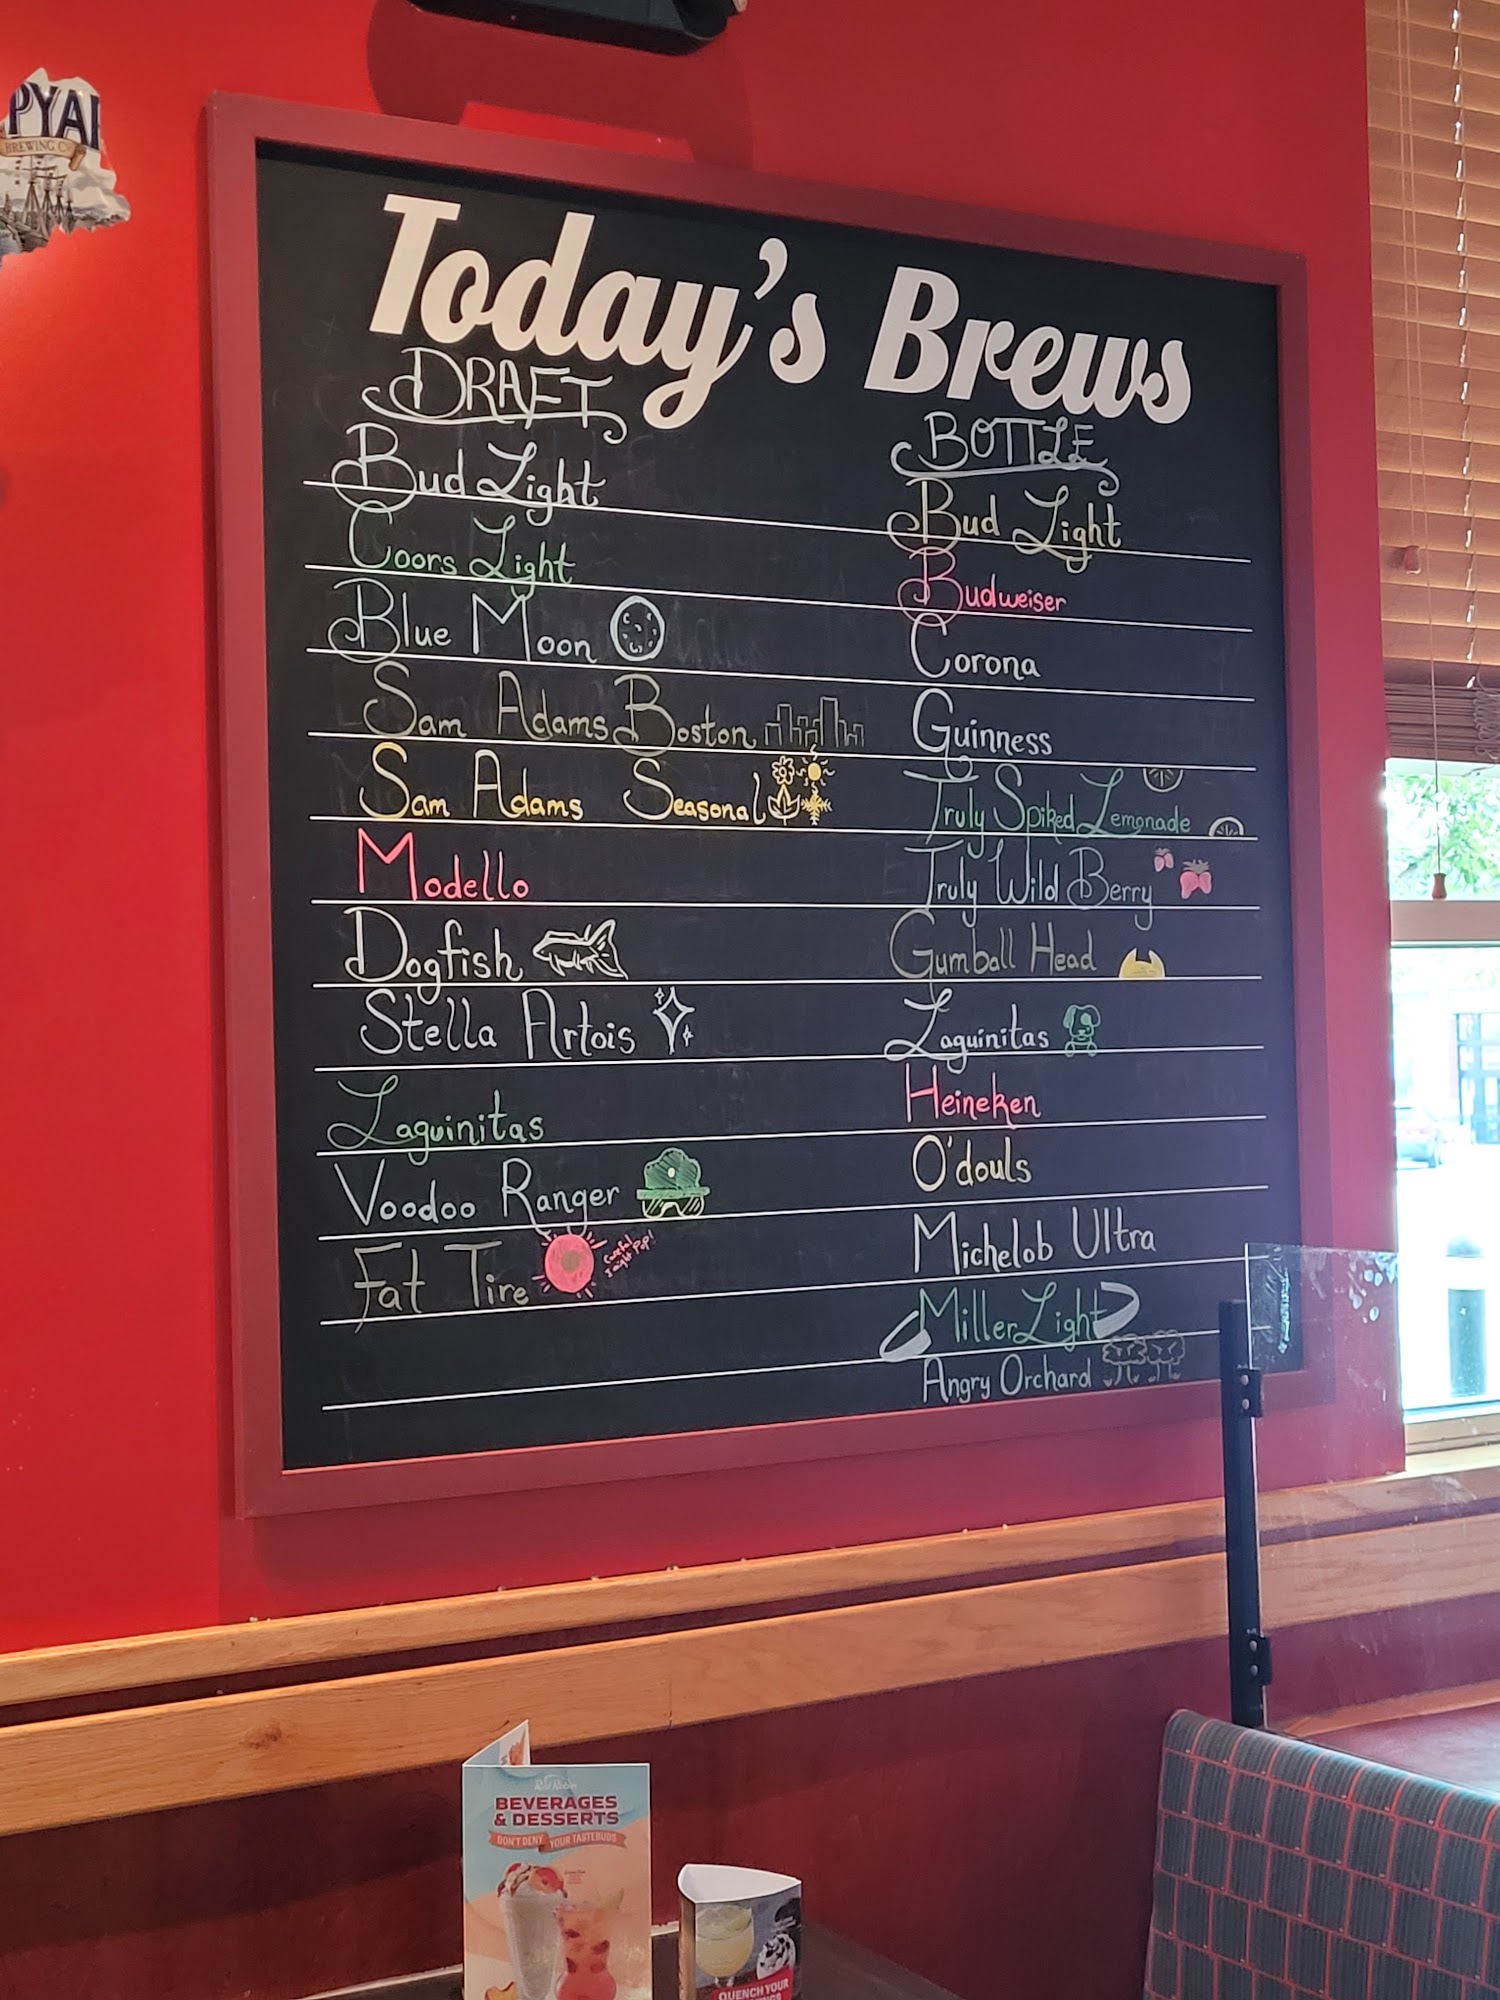 PYAR
BREWING C
Today's Brews
DRAFT
Bud Light
Coors Light
Blue Moon
Sam Adams Boston
Sam Adams Seasonal
Modello
Dogfish
Stella Artois
Laguinitas
Voodoo Ranger
Fat Tire
Careful
I might Pop!
BOTTLE
Bud Light
Budweiser
Corona
Guinness
Truly Spiked Lemonade
Truly Wild Berry
Gumball Head
Laguinitas
Heineken
O'douls
Michelob Ultra
Miller Light
Angry Orchard
Red Robin
BEVERAGES
& DESSERTS
DON'T DENY YOUR TASTEBUDS
QUENCH YOUR